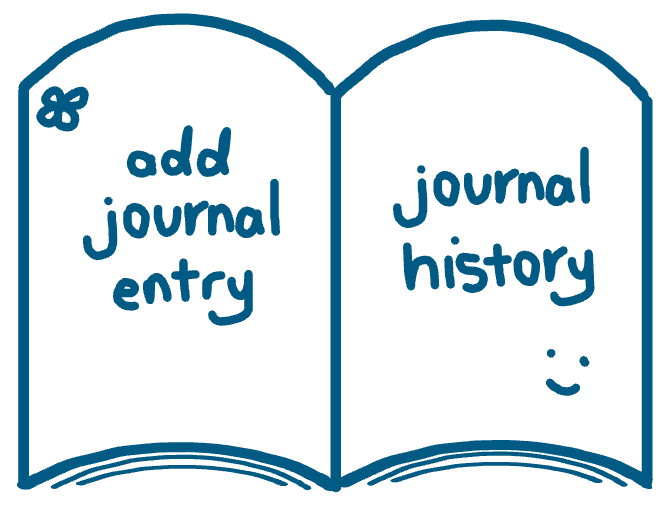 add
journal
entry
journal
history